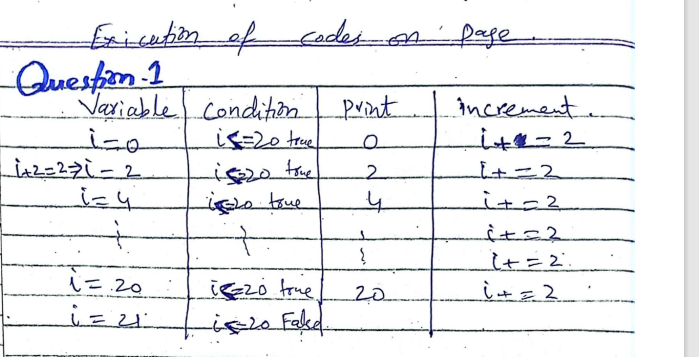 Exicution of codes on page.
Question-1
Variable Condition Print increment.
i=0 i<=20 true 0 i+=2
i+2=2⇒i=2 i<=20 true 2 i+=2
i=4 i<=20 true 4 i+=2
i+=2
i+=2.
i=20 i<=20 true 20 i+=2
i=21 i<=20 False